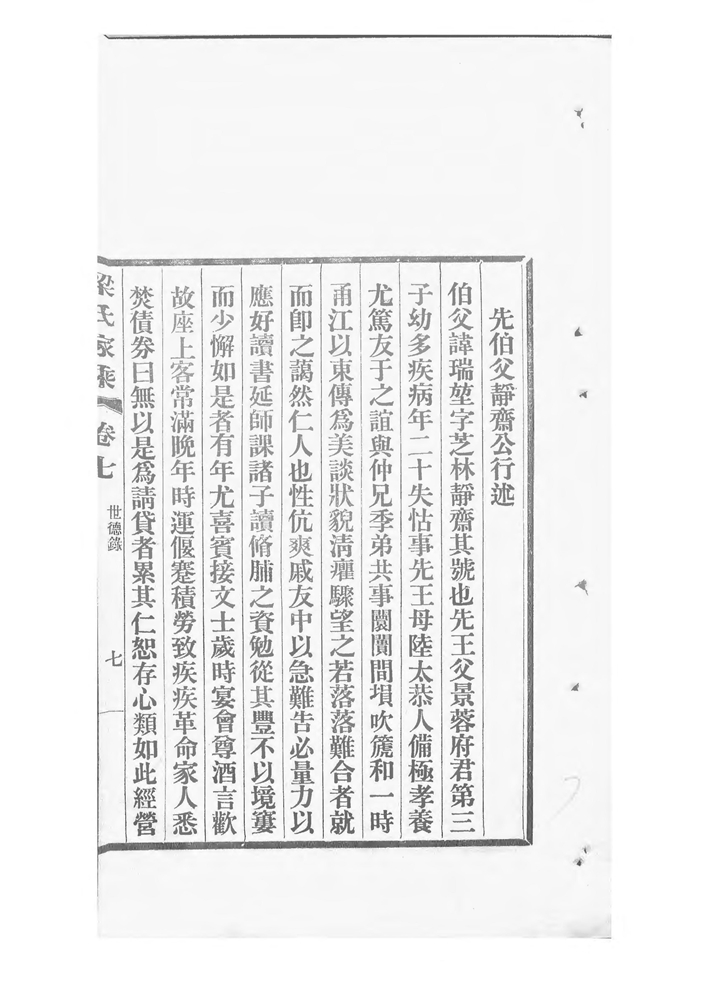 先伯父靜齋公行述
伯父諱瑞堃字芝林靜齋其號也先王父景蓉府君第三
子幼多疾病年二十失怙事先王母陸太恭人備極孝養
尤篤友于之誼與仲兄季弟共事闤闠間塤吹篪和一時
甬江以東傳爲美談狀貌清癯驟望之若落落難合者就
而卽之藹然仁人也性伉爽戚友中以急難告必量力以
應好讀書延師課諸子讀脩脯之資勉從其豐不以境窶
而少懈如是者有年尤喜賓接文士歲時宴會尊酒言歡
故座上客常滿晚年時運偃蹇積勞致疾疾革命家人悉
焚債券曰無以是爲請貸者累其仁恕存心類如此經營
梁氏家乘 卷七 世德錄 七